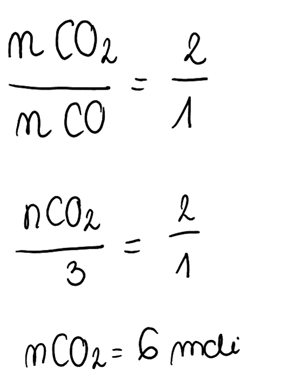 nCO₂ / nCO = 2 / 1
nCO₂ / 3 = 2 / 1
nCO₂ = 6 moli